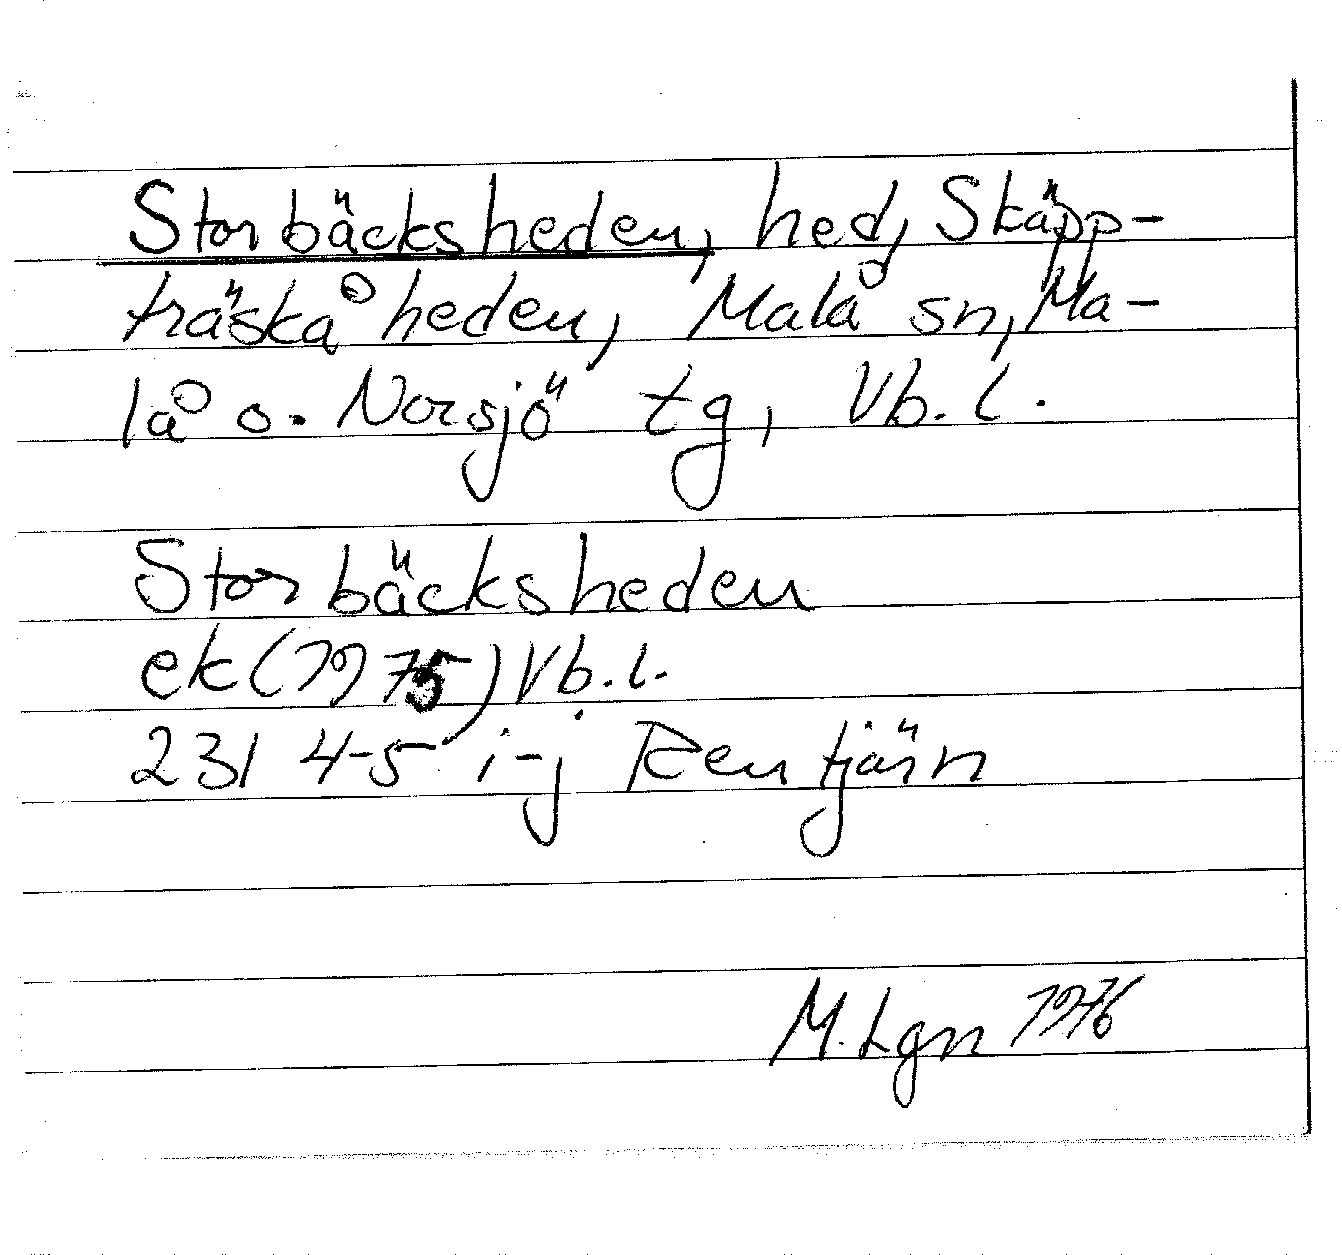 Storbäcksheden, hed, Skäpp-
träskåheden, Malå sn, Ma-
lå o. Norsjö tg, Vb. l.
Storbäcksheden
ek (1975) Vb. l.
231 4-5 i-j Rentjärn
M. Lgn 1976